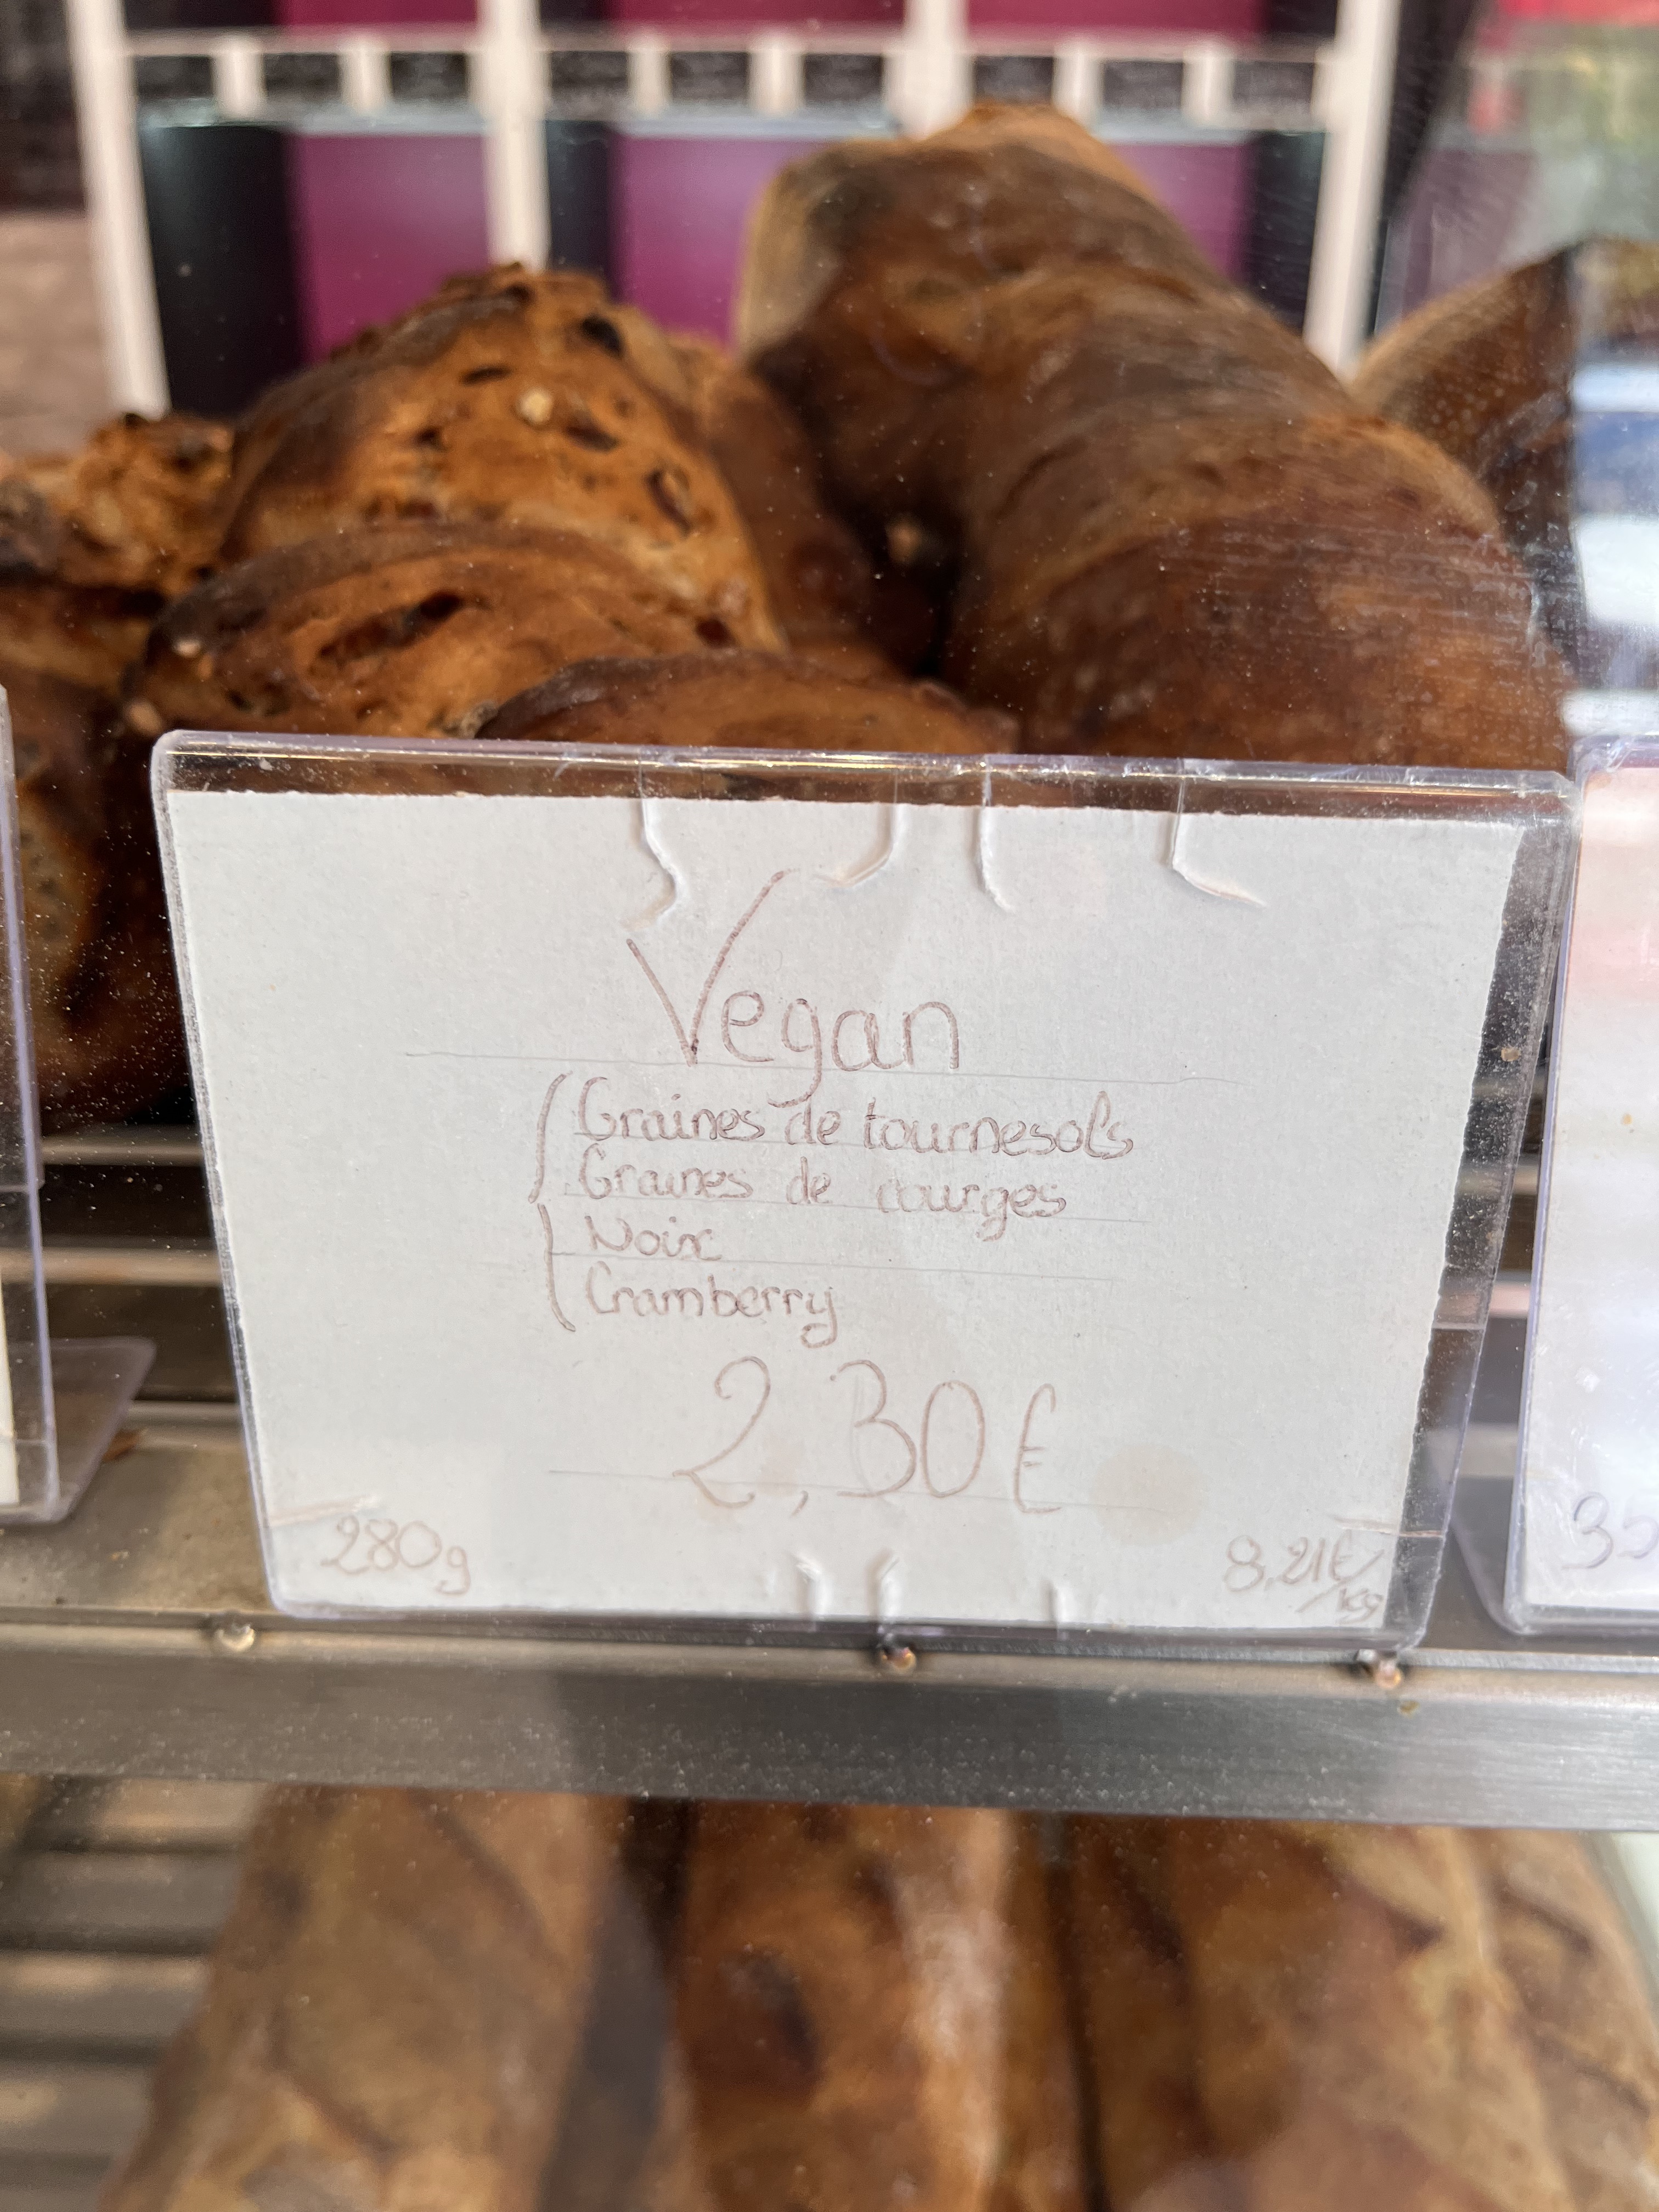 Vegan
Graines de tournesols
Graines de courges
Noix
Cramberry
2,30€
280g
8,21€/kg